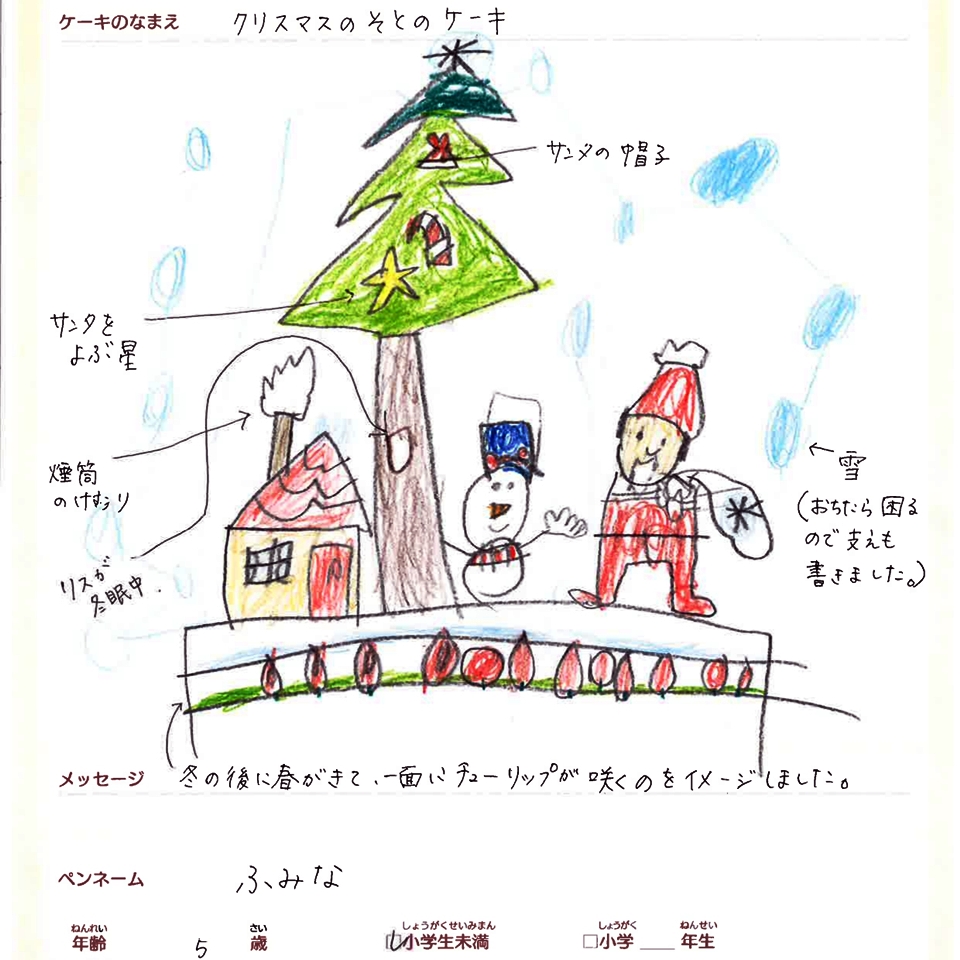 ケーキのなまえ クリスマスのそとのケーキ
サンタの帽子
サンタを
よぶ星
煙筒
のけむり
雪
(おちたら困る
ので支えも
書きました。)
リスが
冬眠中.
メッセージ 冬の後に春がきて、一面にチューリップが咲くのをイメージしました。
ペンネーム ふみな
ねんれい さい しょうがくせいみまん しょうがく ねんせい
年齢 5 歳 □小学生未満 □小学 ___ 年生